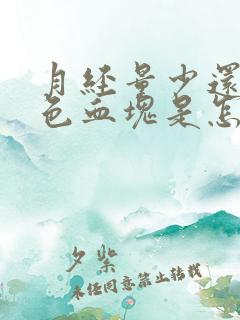 月经量少还
色血块是怎
夕紫
未经同意禁止转载